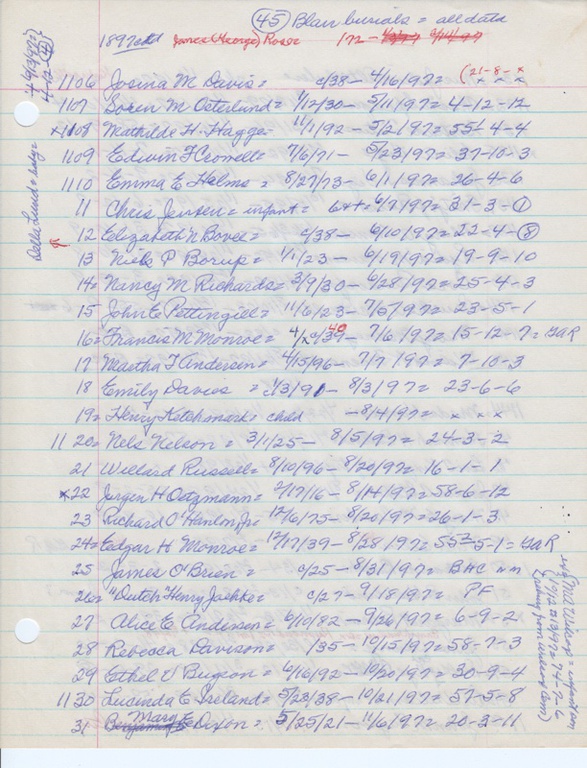 (45) Blair burials = all data
1897 James (George) Roser 172 -
1106 Josina M Davis = c/38 - 4/16/97 = (21-8-x
x x x
1107 Soren M Osterlund = 1/12/30 - 5/11/97 = 4-12-12
x1108 Mathilde H. Hagge = 11/1/92 - 5/2/97 = 55-4-4
1109 Edwin F Crowell = 7/6/71 - 5/23/97 = 37-10-3
1110 Emma E Halms = 8/27/73 - 6/1/97 = 26-4-6
11 Chris Jensen = infant = 6/7/97 = 31-3-(1)
12 Elizabeth N Bovee = c/38 - 6/10/97 = 22-4-(8)
13 Niels P Borup = 1/1/23 - 6/19/97 = 19-9-10
14 = Nancy M Richards = 3/9/30 - 6/28/97 = 25-4-3
15 John E Pettingill = 11/6/23 - 7/5/97 = 23-5-1
16 = Francis M Monroe = 40 - 7/6/97 = 15-12-7 = GAR
17 Martha T Andersen = 4/15/96 - 7/7/97 = 7-10-3
18 Emily Davies = - 8/3/97 = 23-6-6
19 = Henry Ketchmark = child - 8/4/97 = x x x
1120 = Nels Nelson = 3/11/25 - 8/5/97 = 24-3-2
21 Willard Russell = 8/10/96 - 8/20/97 = 16-1-1
x22 Jurgen H Oetzmann = 2/17/16 - 8/14/97 = 58-6-12
23 Richard O'Hanlon, Jr = 12/6/75 - 8/20/97 = 26-1-3
24 = Edgar H Monroe = 12/17/39 - 8/28/97 = 55-5-1 = GAR
25 James O'Brien = c/25 - 8/31/97 = BHC nm
26 = "Dutch Henry" Jaehke = c/27 - 9/18/97 = PF
27 Alice E Anderson = 6/10/82 - 9/26/97 = 6-9-2
28 Rebecca Davison = /35 - 10/15/97 = 58-7-3
29 Ethel V Bugeon = 6/16/92 - 10/20/97 = 30-9-4
1130 Lucinda E Ireland = 5/23/38 - 10/21/97 = 57-5-8
31 Mary E Dixon = 5/25/21 - 11/6/97 = 20-3-11